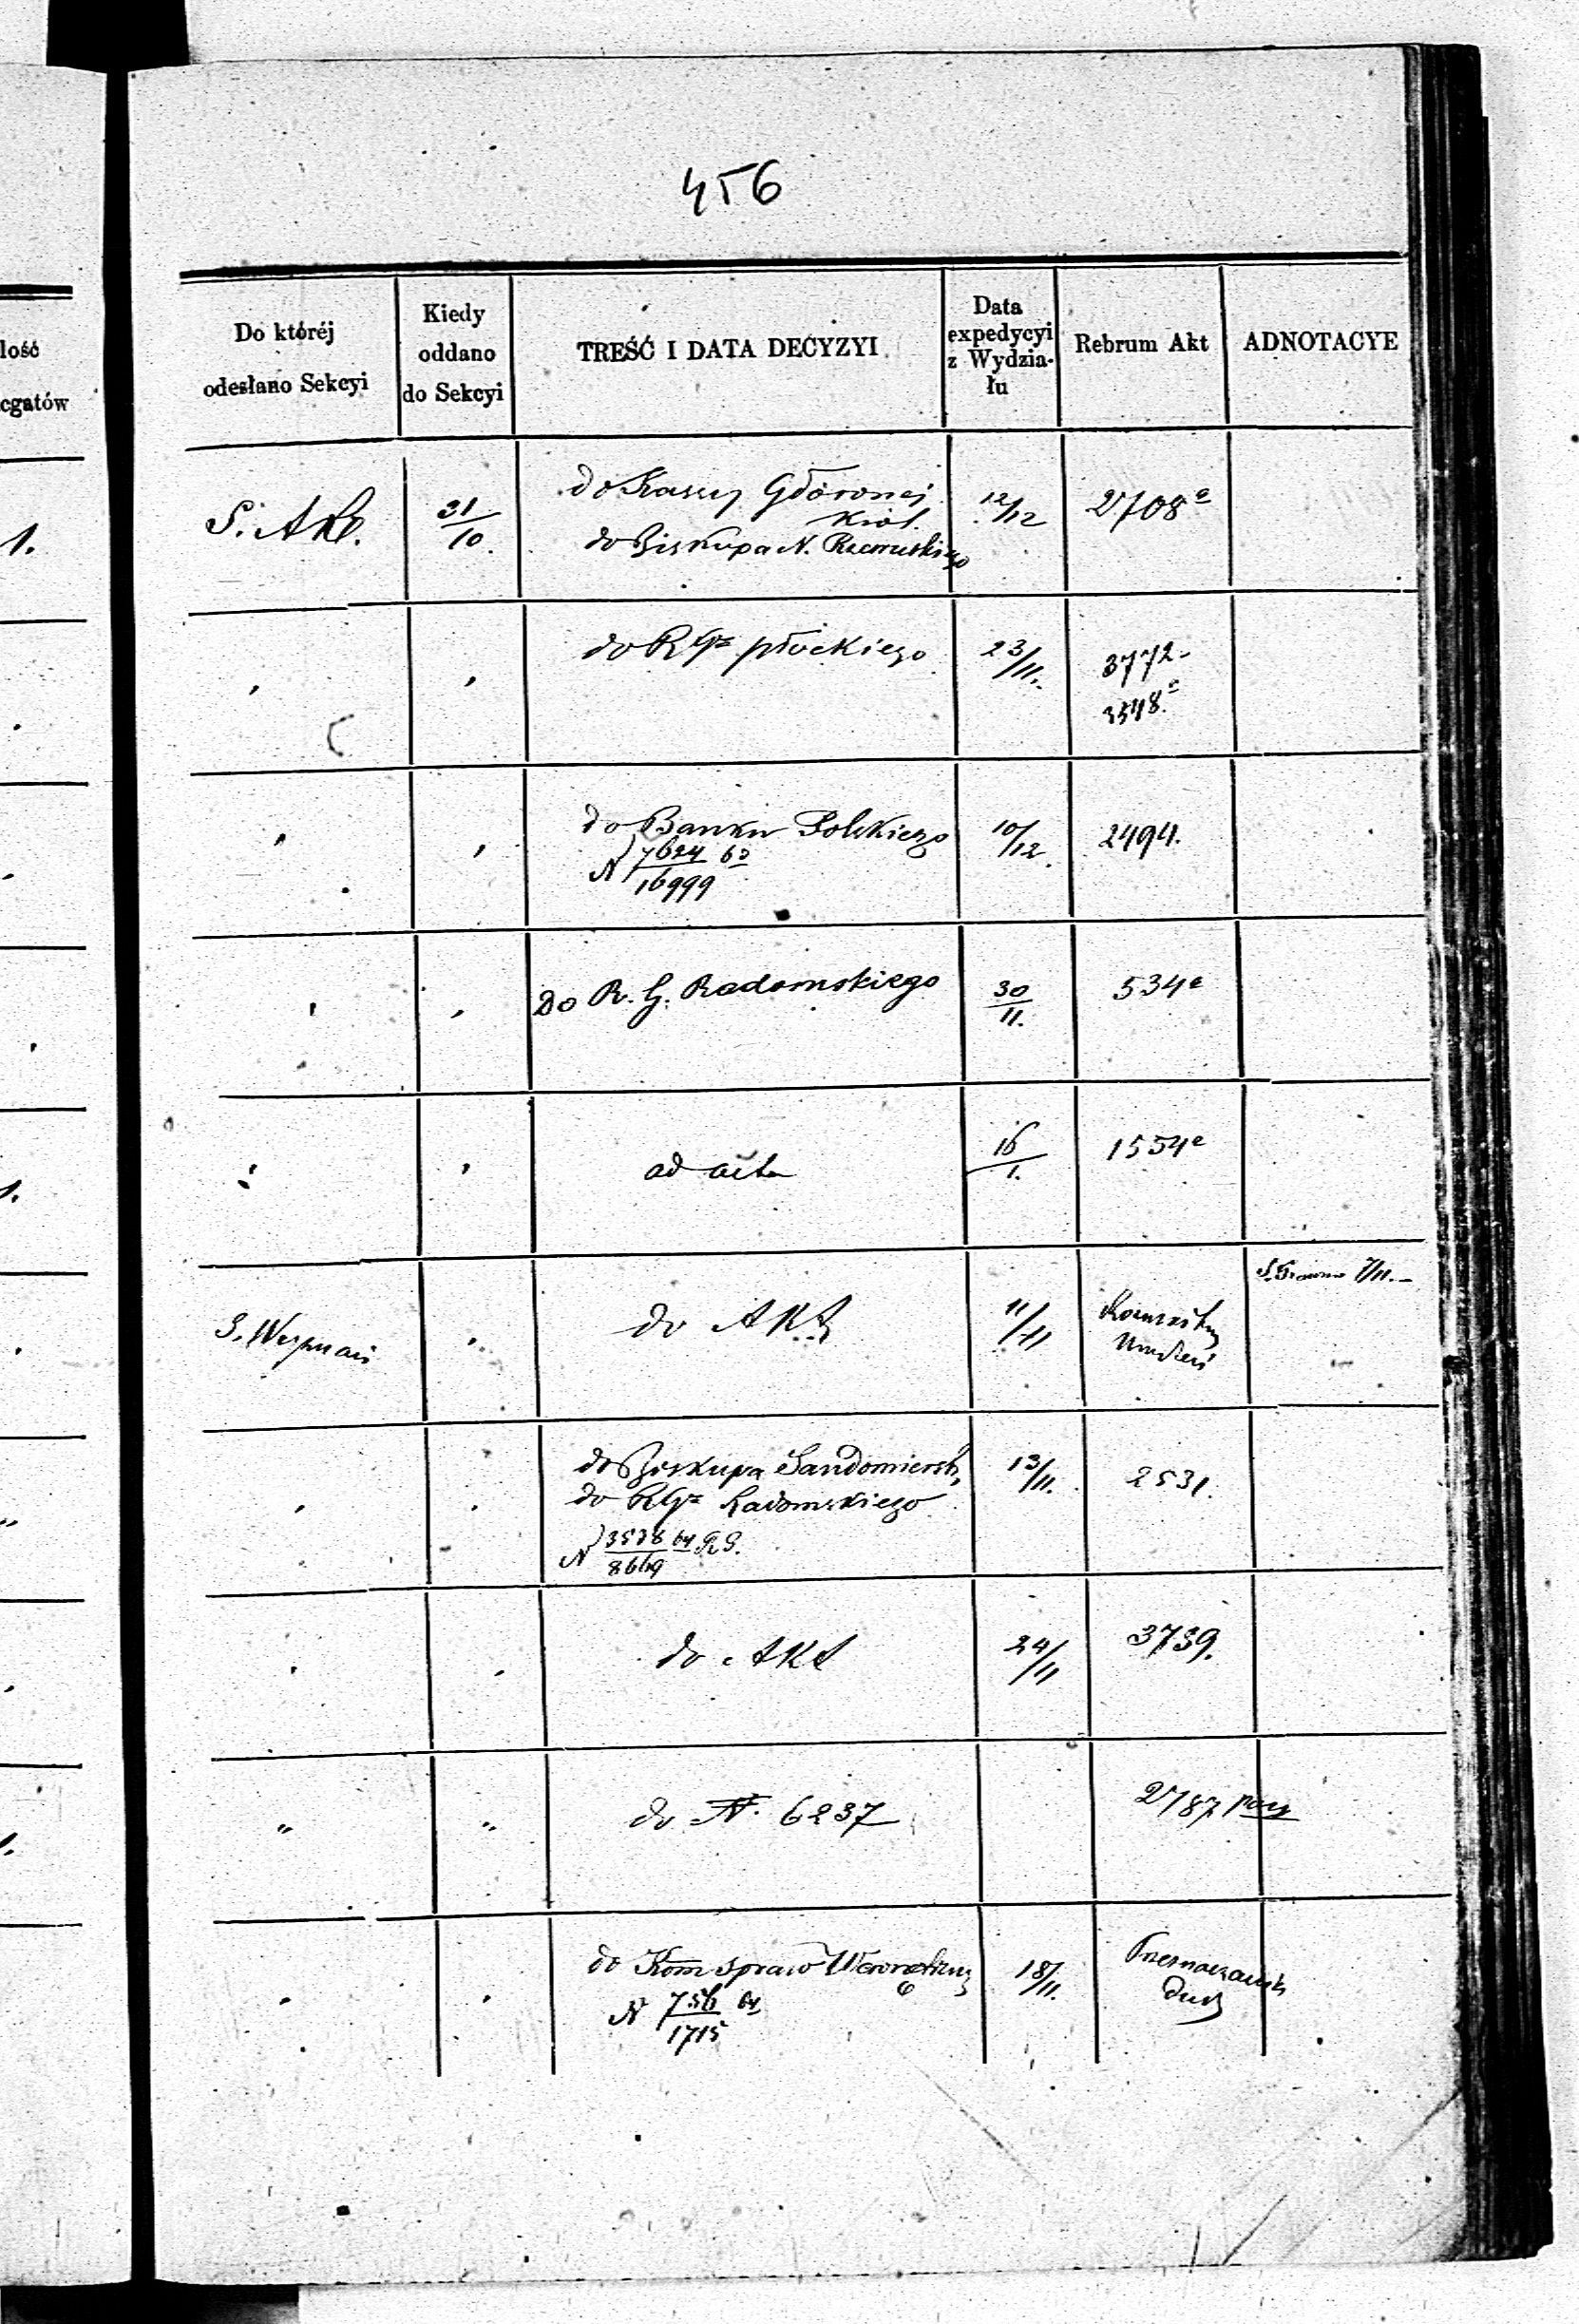 456
lość
cgatów
Do któréj
odesłano Sekcyi
Kiedy
oddano
do Sekcyi
TREŚĆ I DATA DECYZYI
Data
expedycyi
z Wydzia-
łu
Rebrum Akt
ADNOTACYE
1.
31/10
do Kassy Głównej
do Biskupa N.
12/12
2708 a
do RGr płockiego
23/11.
3772
3548.
do Banku Polskiego
N 7624/16999 63
10/12
2494.
Do R. G. Radomskiego
30/11.
534 a
1.
ad acta
16/1.
1554 e
do Akt
11/11
7/11.
do Biskupa Sandomiersk
do RGr Radomskiego
N 3578/8669 64 R S.
13/11.
2531.
do Akt
24/11
3739.
1.
" "
do N. 6237
2787
do Kom spraw Wewnętrzny
N 756/1715 64
18/11.